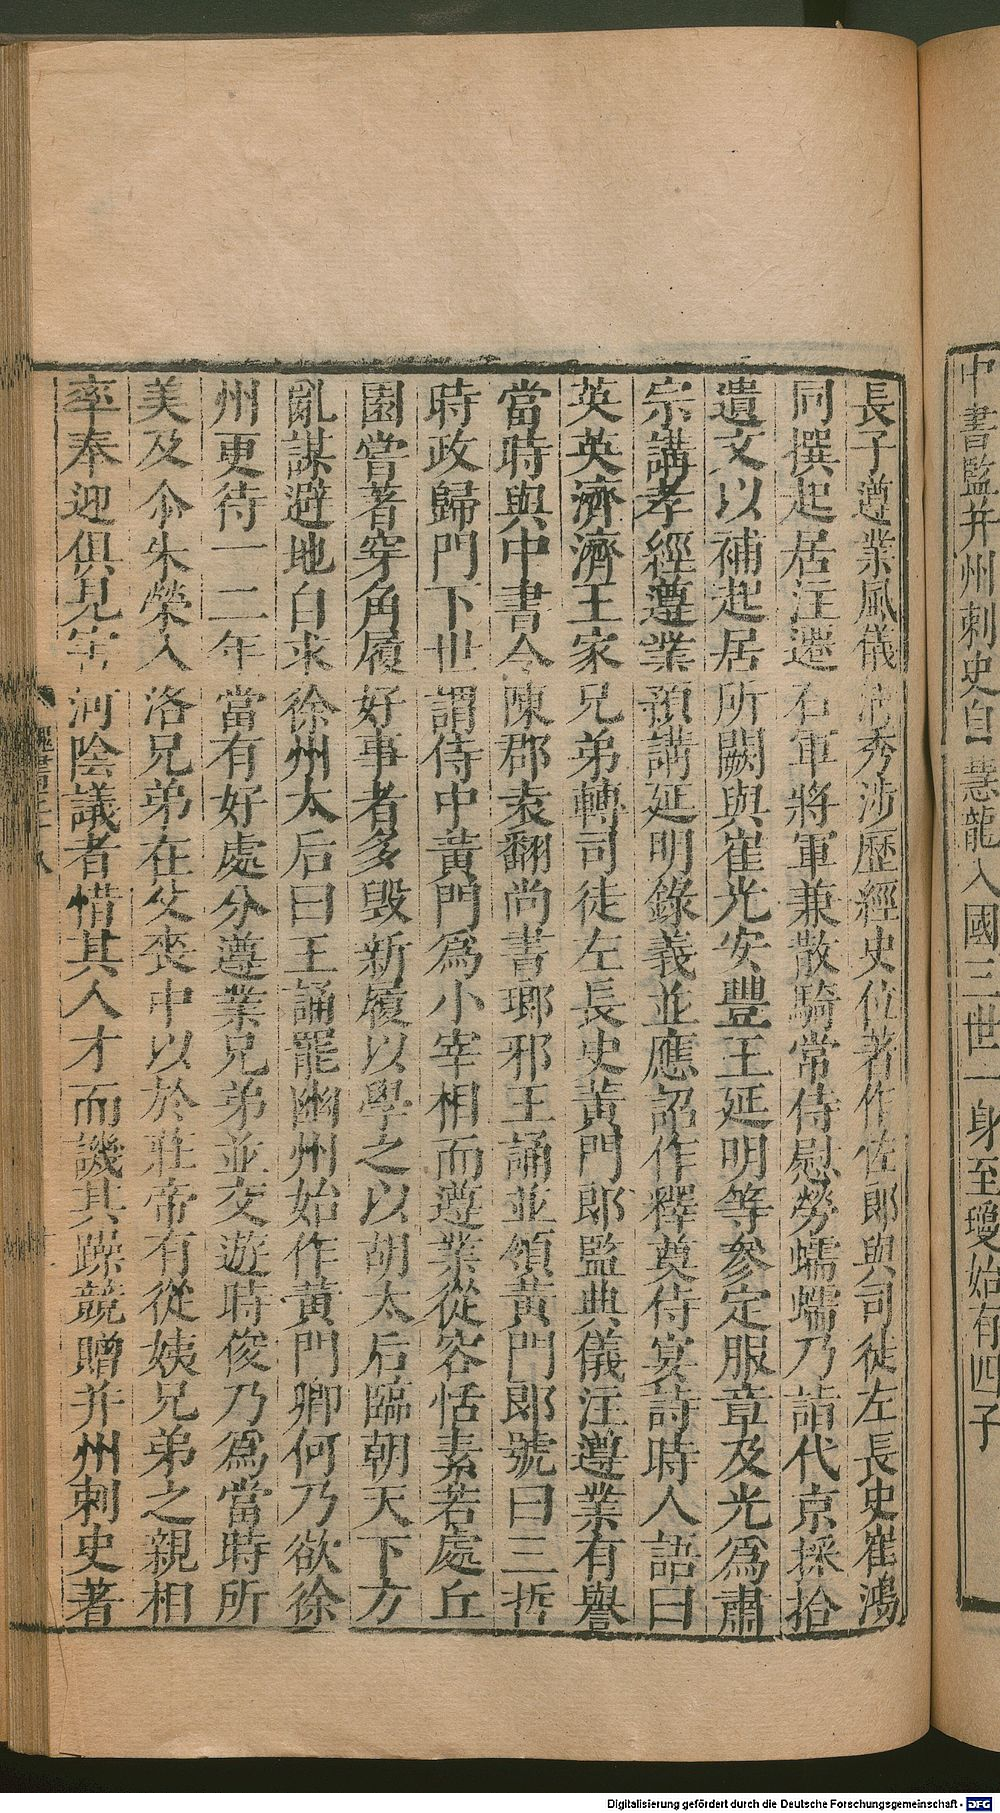 中書監并州刺史自慧龍入國三世一身至瓊始有四子
長子遵業風儀清秀涉歷經史位著作佐郎與司徒左長史崔鴻
同撰起居注遷右軍將軍兼散騎常侍慰勞蠕蠕乃詣代京採拾
遺文以補起居所闕與崔光安豐王延明等參定服章及光爲肅
宗講孝經遵業預講延明錄義並應詔作釋奠侍宴詩時人語曰
英英濟濟王家兄弟轉司徒左長史黃門郎監典儀注遵業有譽
當時與中書令陳郡袁翻尚書瑯邪王誦並領黃門郎號曰三哲
時政歸門下世謂侍中黃門爲小宰相而遵業從容恬素若處丘
園嘗著穿角履好事者多毀新履以學之以胡太后臨朝天下方
亂謀避地自求徐州太后曰王誦罷幽州始作黃門卿何乃欲徐
州更待一二年當有好處分遵業兄弟並交遊時俊乃爲當時所
美及尒朱榮入洛兄弟在父喪中以於莊帝有從姨兄弟之親相
率奉迎俱見害河陰議者惜其人才而譏其躁競贈并州刺史著
魏書
Digitalisierung gefördert durch die Deutsche Forschungsgemeinschaft - DFG